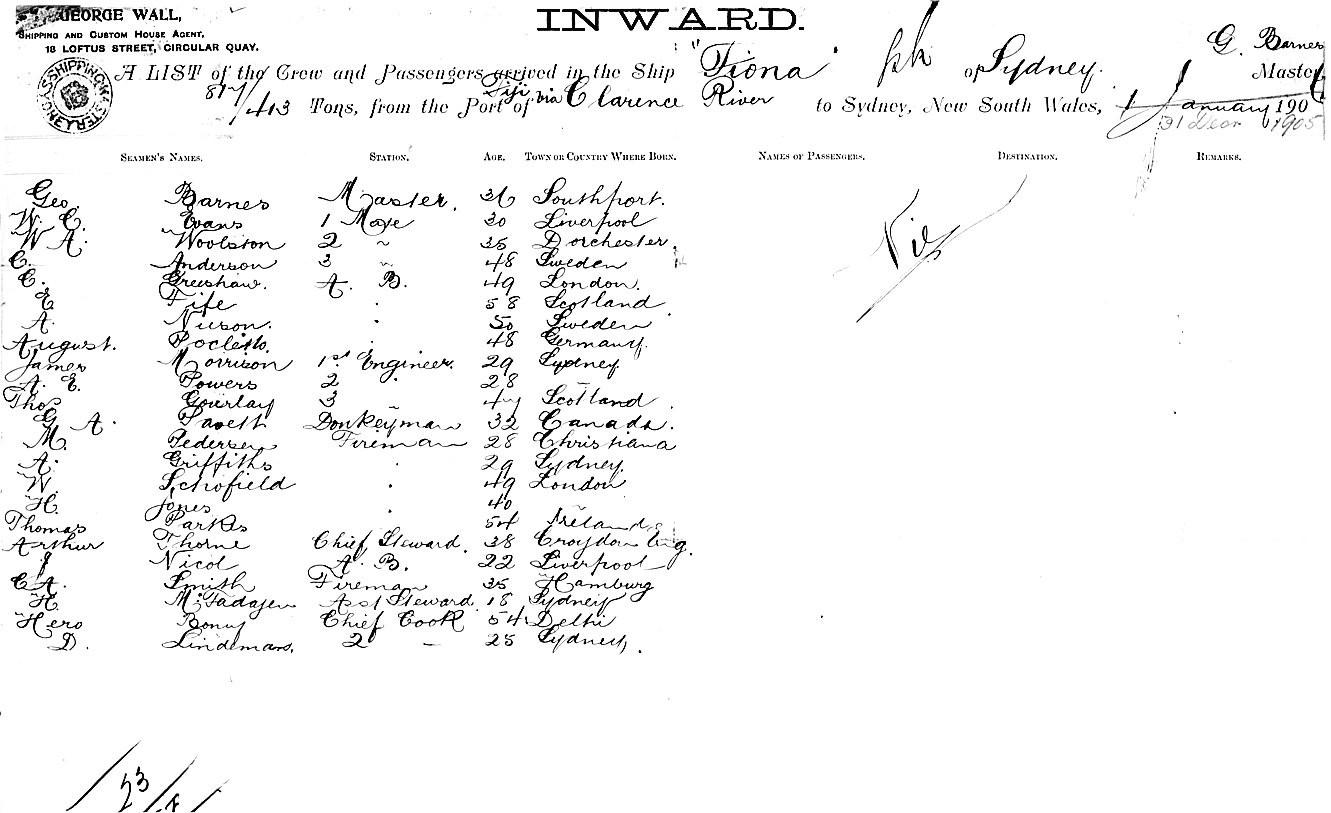 GEORGE WALL,
SHIPPING AND CUSTOM HOUSE AGENT,
18 LOFTUS STREET, CIRCULAR QUAY.
INWARD.
G. Barnes
A LIST of the Crew and Passengers arrived in the Ship "Fiona" of Sydney. Master
817/413 Tons, from the Port of Fiji via Clarence River to Sydney, New South Wales, 1 January 190
31 Decr 1905
SHIPPING MASTER SYDNEY
SEAMEN'S NAMES. STATION. AGE. TOWN OR COUNTRY WHERE BORN. NAMES OF PASSENGERS. DESTINATION. REMARKS.
Geo. Barnes Master. 36 Southport.
W. C. Evans 1 Mate 30 Liverpool
W A. Woolston 2 " 35 Dorchester.
C. Anderson 3 " 48 Sweden
C. Greeshaw. A. B. 49 London.
Fife 58 Scotland
A. 50 Sweden
August. 48 Germany.
James Morrison 1st Engineer. 29 Sydney
A. E. Powers 2 28
Thos Gourlay 3 " 47 Scotland.
G A. Donkeyman 32 Canada.
M. Pedersen Fireman 28 Christiana
A. Griffiths 29 Sydney.
W. Schofield 49 London
H. Jones 40
Thomas Parkes 54 Ireland
Arthur Thorne Chief Steward. 38 Croydon Eng.
J Nicol A. B. 22 Liverpool
C A. Smith Fireman 35 Hamburg
H. Asst Steward 18 Sydney
Hero Bonny Chief Cook 54 Delhi
D. Lindemans. 2 " 25 Sydney.
Nil
23